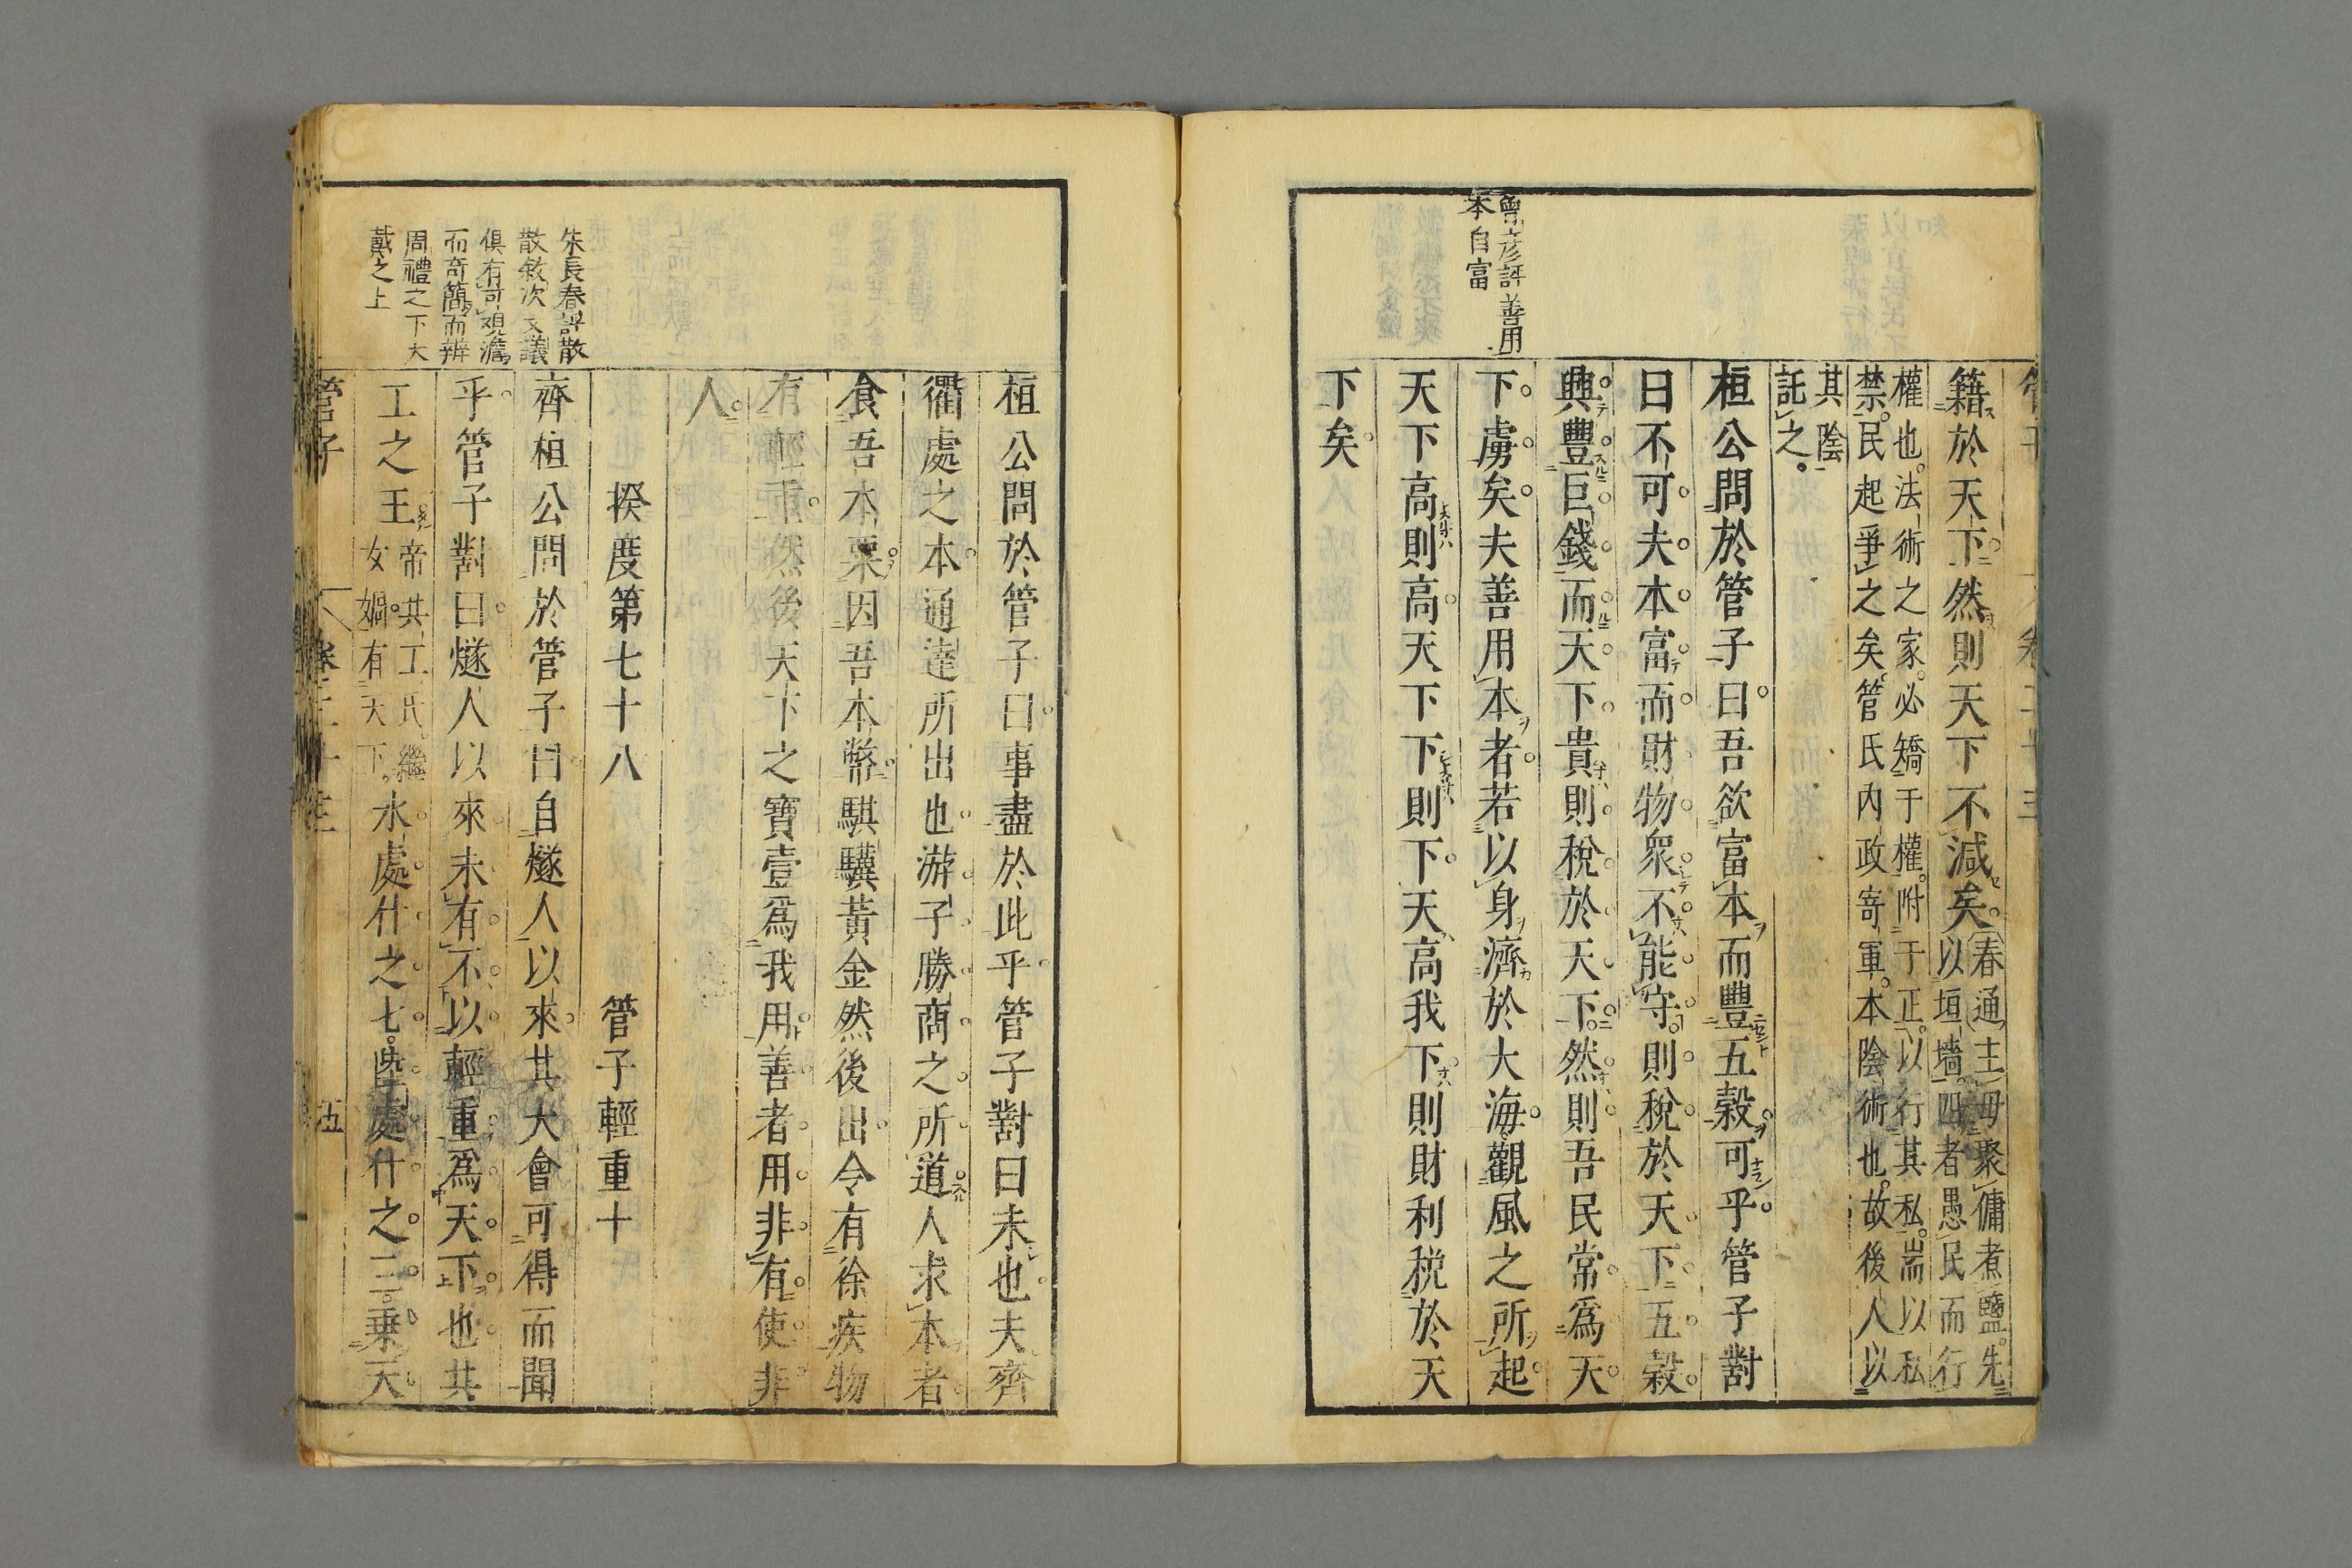 籍於天下然則天下不減矣春通主毋聚傭煮鹽先
以垣墻四者愚民而行
權也法術之家必矯于權附于正以行其私耑以私
禁民起爭之矣管氏内政寄軍本陰術也故後人以
其陰
託之
桓公問於管子曰吾欲富本而豐五穀可乎管子對
曰不可夫本富而財物衆不能守則稅於天下五穀
興豐巨錢而天下貴則稅於天下然則吾民常爲天
下虜矣夫善用本者若以身濟於大海觀風之所起
天下高則高天下下則下天高我下則財利稅於天
下矣
評善用
本自富
桓公問於管子曰事盡於此乎管子對曰未也夫齊
衢處之本通達所出也游子勝商之所道人求本者
食吾本粟因吾本幣騏驥黃金然後出令有徐疾物
有輕重然後天下之寶壹爲我用善者用非有使非
人
揆度第七十八　管子輕重十
齊桓公問於管子曰自燧人以來其大會可得而聞
乎管子對曰燧人以來未有不以輕重爲天下也共
工之王帝共工氏繼
女媧有天下水處什之七陸處什之三乘天
朱長春評散
散敘次文議
俱有可觀澹
而奇簡而辨
周禮之下大
戴之上
管子　卷二十三　五